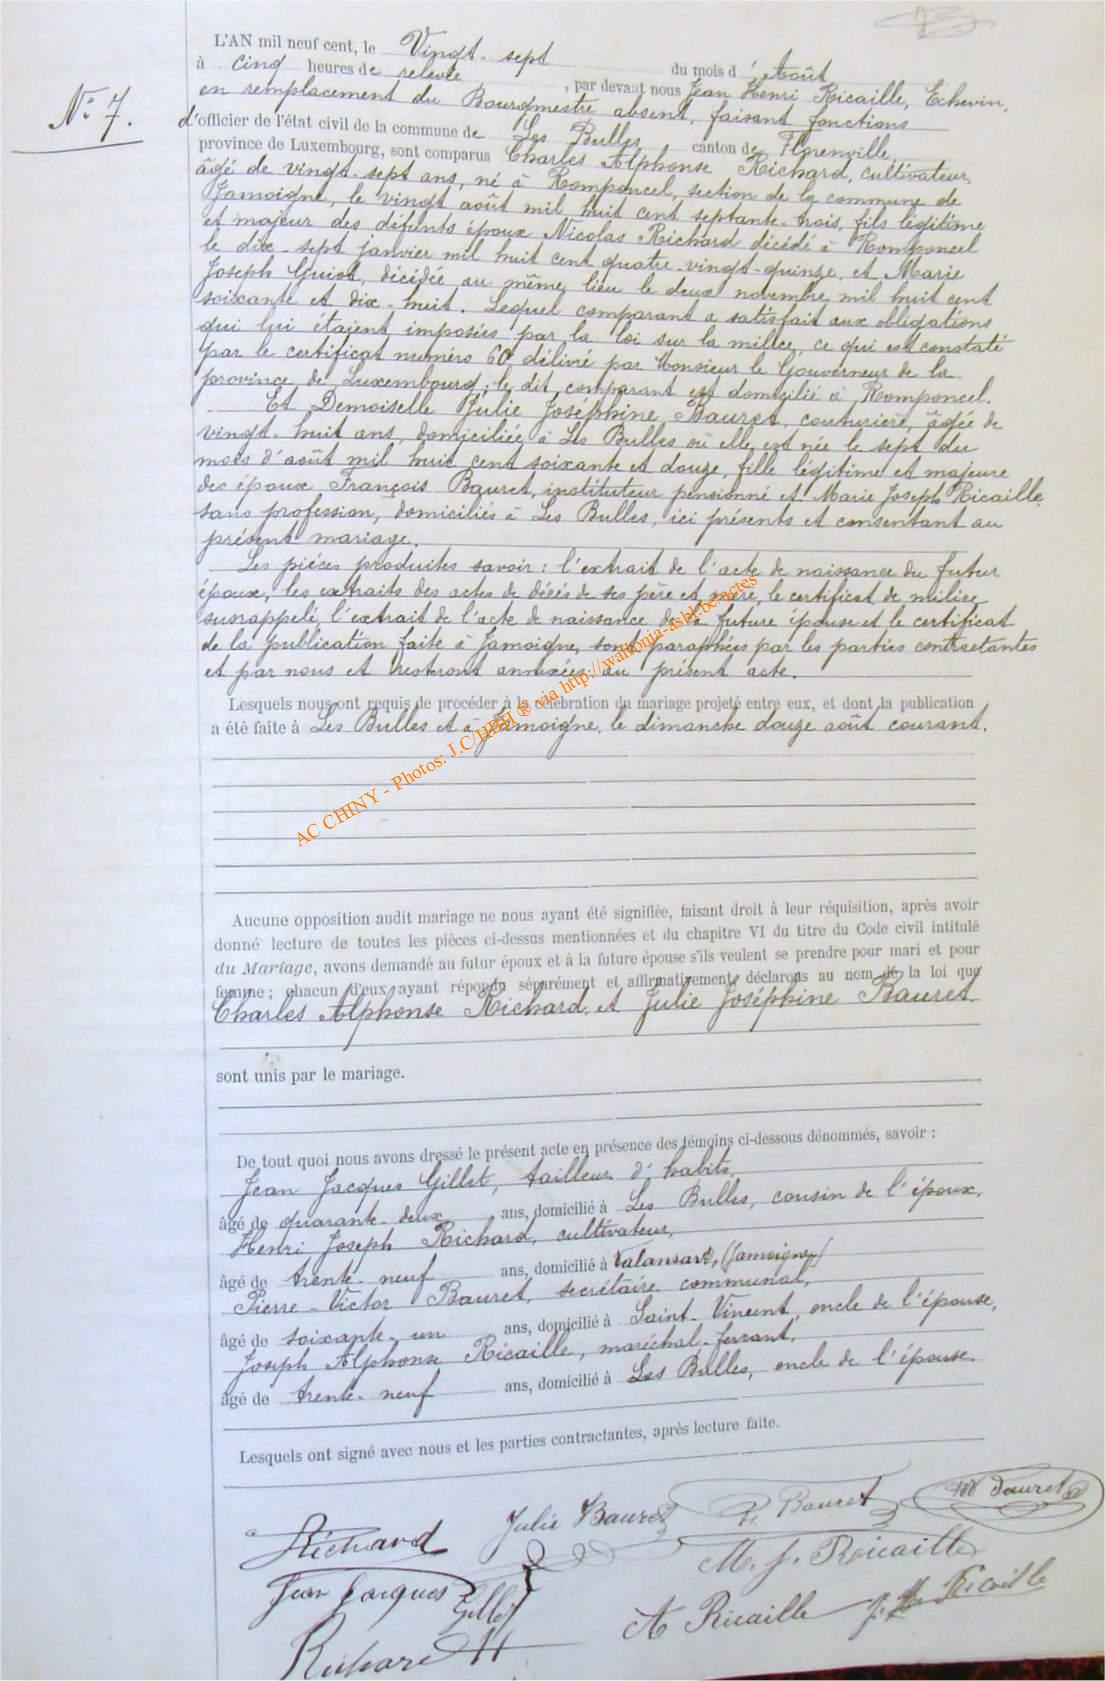 N° 7.
L'AN mil neuf cent, le Vingt-sept du mois d'Août
à cinq heures de relevée, par devant nous Jean Henri Ricaille, Echevin,
en remplacement du Bourgmestre absent, faisant fonctions
d'officier de l'état civil de la commune de Les Bulles canton de Florenville,
province de Luxembourg, sont comparus Charles Alphonse Richard, cultivateur,
âgé de vingt-sept ans, né à Romponcel, section de la commune de
Jamoigne, le vingt août mil huit cent septante-trois, fils légitime
et majeur des défunts époux Nicolas Richard décédé à Romponcel
le dix-sept janvier mil huit cent quatre-vingt-quinze, et Marie
Joseph Guiot, décédée au même lieu le deux novembre mil huit cent
soixante et dix-huit. Lequel comparant a satisfait aux obligations
qui lui étaient imposées par la loi sur la milice, ce qui est constaté
par le certificat numéro 60 délivré par Monsieur le Gouverneur de la
province de Luxembourg; le dit comparant est domicilié à Romponcel.
Et Demoiselle Julie Joséphine Bauret, couturière, âgée de
vingt-huit ans, domiciliée à Les Bulles où elle est née le sept du
mois d'août mil huit cent soixante et douze, fille légitime et majeure
des époux François Bauret, instituteur pensionné et Marie Joseph Ricaille,
sans profession, domiciliés à Les Bulles, ici présents et consentant au
présent mariage.
Les pièces produites savoir: l'extrait de l'acte de naissance du futur
époux, les extraits des actes de décès de ses père et mère, le certificat de milice
susrappelé, l'extrait de l'acte de naissance de la future épouse et le certificat
de la publication faite à Jamoigne, sont paraphées par les parties contractantes
et par nous et resteront annexées au présent acte.
Lesquels nous ont requis de procéder à la célébration du mariage projeté entre eux, et dont la publication
a été faite à Les Bulles et à Jamoigne, le dimanche douze août courant.
AC CHINY - Photos: J.C/HBH ® via http://wallonia-asbl.be/actes
Aucune opposition audit mariage ne nous ayant été signifiée, faisant droit à leur réquisition, après avoir
donné lecture de toutes les pièces ci-dessus mentionnées et du chapitre VI du titre du Code civil intitulé
du Mariage, avons demandé au futur époux et à la future épouse s'ils veulent se prendre pour mari et pour
femme; chacun d'eux ayant répondu séparément et affirmativement, déclarons au nom de la loi que
Charles Alphonse Richard et Julie Joséphine Bauret
sont unis par le mariage.
De tout quoi nous avons dressé le présent acte en présence des témoins ci-dessous dénommés, savoir :
Jean Jacques Gillet, tailleur d'habits,
âgé de quarante-deux ans, domicilié à Les Bulles, cousin de l'époux,
Henri Joseph Richard, cultivateur,
âgé de trente-neuf ans, domicilié à Valansart, (Jamoigne)
Pierre-Victor Bauret, secrétaire communal,
âgé de soixante-un ans, domicilié à Saint-Vincent, oncle de l'épouse,
Joseph Alphonse Ricaille, maréchal-ferrant,
âgé de trente-neuf ans, domicilié à Les Bulles, oncle de l'épouse.
Lesquels ont signé avec nous et les parties contractantes, après lecture faite.
Richard Julie Bauret Bauret Bauret
Jean Jacques Gillet M. J. Ricaille
Richard A Ricaille J. H. Ricaille